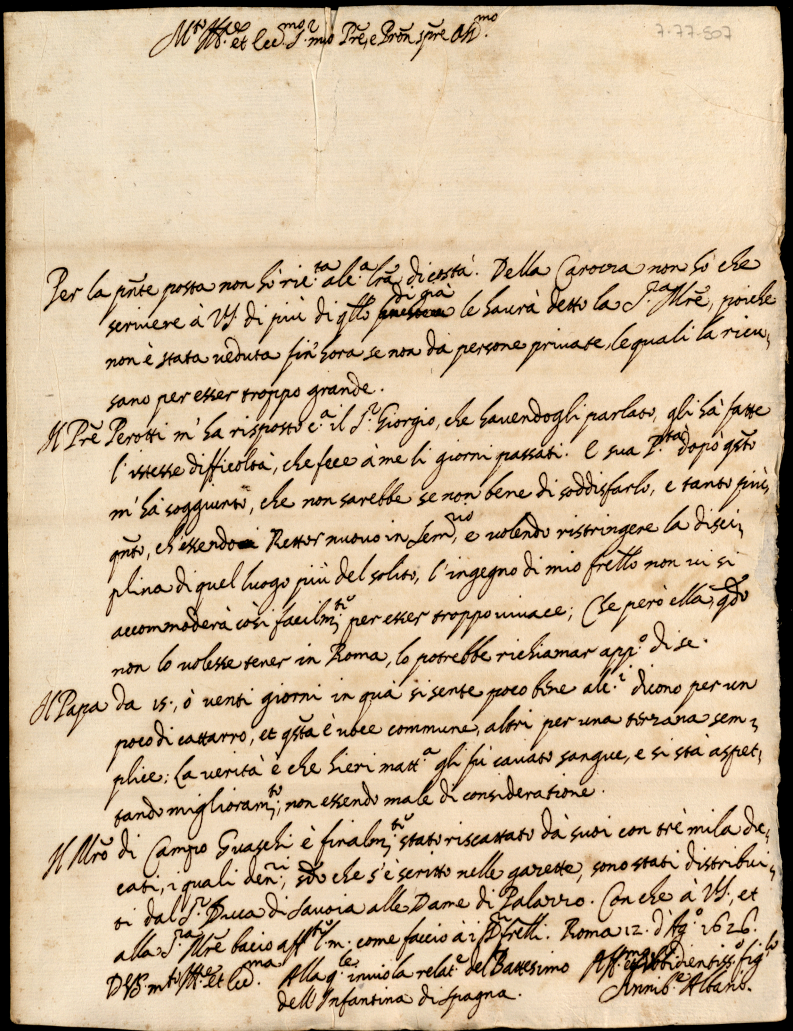 M.to Ill.re et Ecc.mo S.r mio P̃re, e Pr̃on sp̃re Oss.mo
7-77-507
Per la p̃nte posta non hò rice.ta alc.a lr̃a di costà. Della Carozza non hò che
scrivere à VS. di più di q̃llo di già le havrà detto la S.ra Mr̃e, poiche
non è stata veduta fin'hora se non da persone private, le quali la ricu,
sano per esser troppo grande.
Il Pr̃e Perotti m'ha risposto c.a il S.r Giorgio, che havendogli parlato, gli hà fatte
l'istesse difficoltà, che fece à me li giorni passati. E sua P.tà dopò q̃sto
m'hà soggiunto, che non sarebbe se non bene di soddisfarlo, e tanto più,
q̃nto, ch'essendo Rettor nuovo in Sem.rio, e volendo ristringere la disci,
plina di quel luogo più del solito, l'ingegno di mio fr̃ello non vi si
accommoderà così facilm.te per esser troppo vivace; Che però ella, q̃do
non lo volesse tener in Roma, lo potrebbe richiamar app.o di se.
Il Papa da 15., ò venti giorni in quà si sente poco bene alc.i dicono per un
poco di cattarro, et q̃sta è voce commune, altri per una terzana sem,
plice; La verità è che hieri matt.a gli fù cavato sangue, e si stà aspet,
tando miglioram.to, non essendo male di consideratione.
Il Mr̃o di Campo Guaschi è finalm.te stato riscattato dà suoi con trè mila du,
cati, i quali den.ri, s̃do che s'è scritto nelle gazette, sono stati distribui,
ti dal S.r Duca di Savoia alle Dame di Palazzo. Con che à VS., et
alla S.ra Mr̃e bacio aff.te l.m. come faccio à i S.ri fr̃elli. Roma 12. d'Ag.o 1626.
D VS. m.to Ill.re et Ecc.ma Alla q.le invio la relat.e del Battesimo Aff.mo obbidientiss.o fig.lo
dell'Infantina di Spagna. Annib.e Albano.